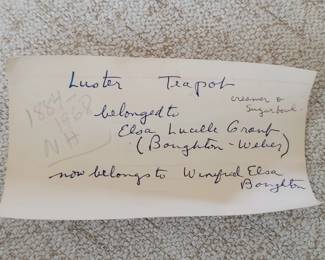 Luster Teapot
creamer &
Sugar bowl
belonged to
Elsa Lucille Grant
(Boughton-Weber)
now belongs to Winifred Elsa
Boughton
1884
NH